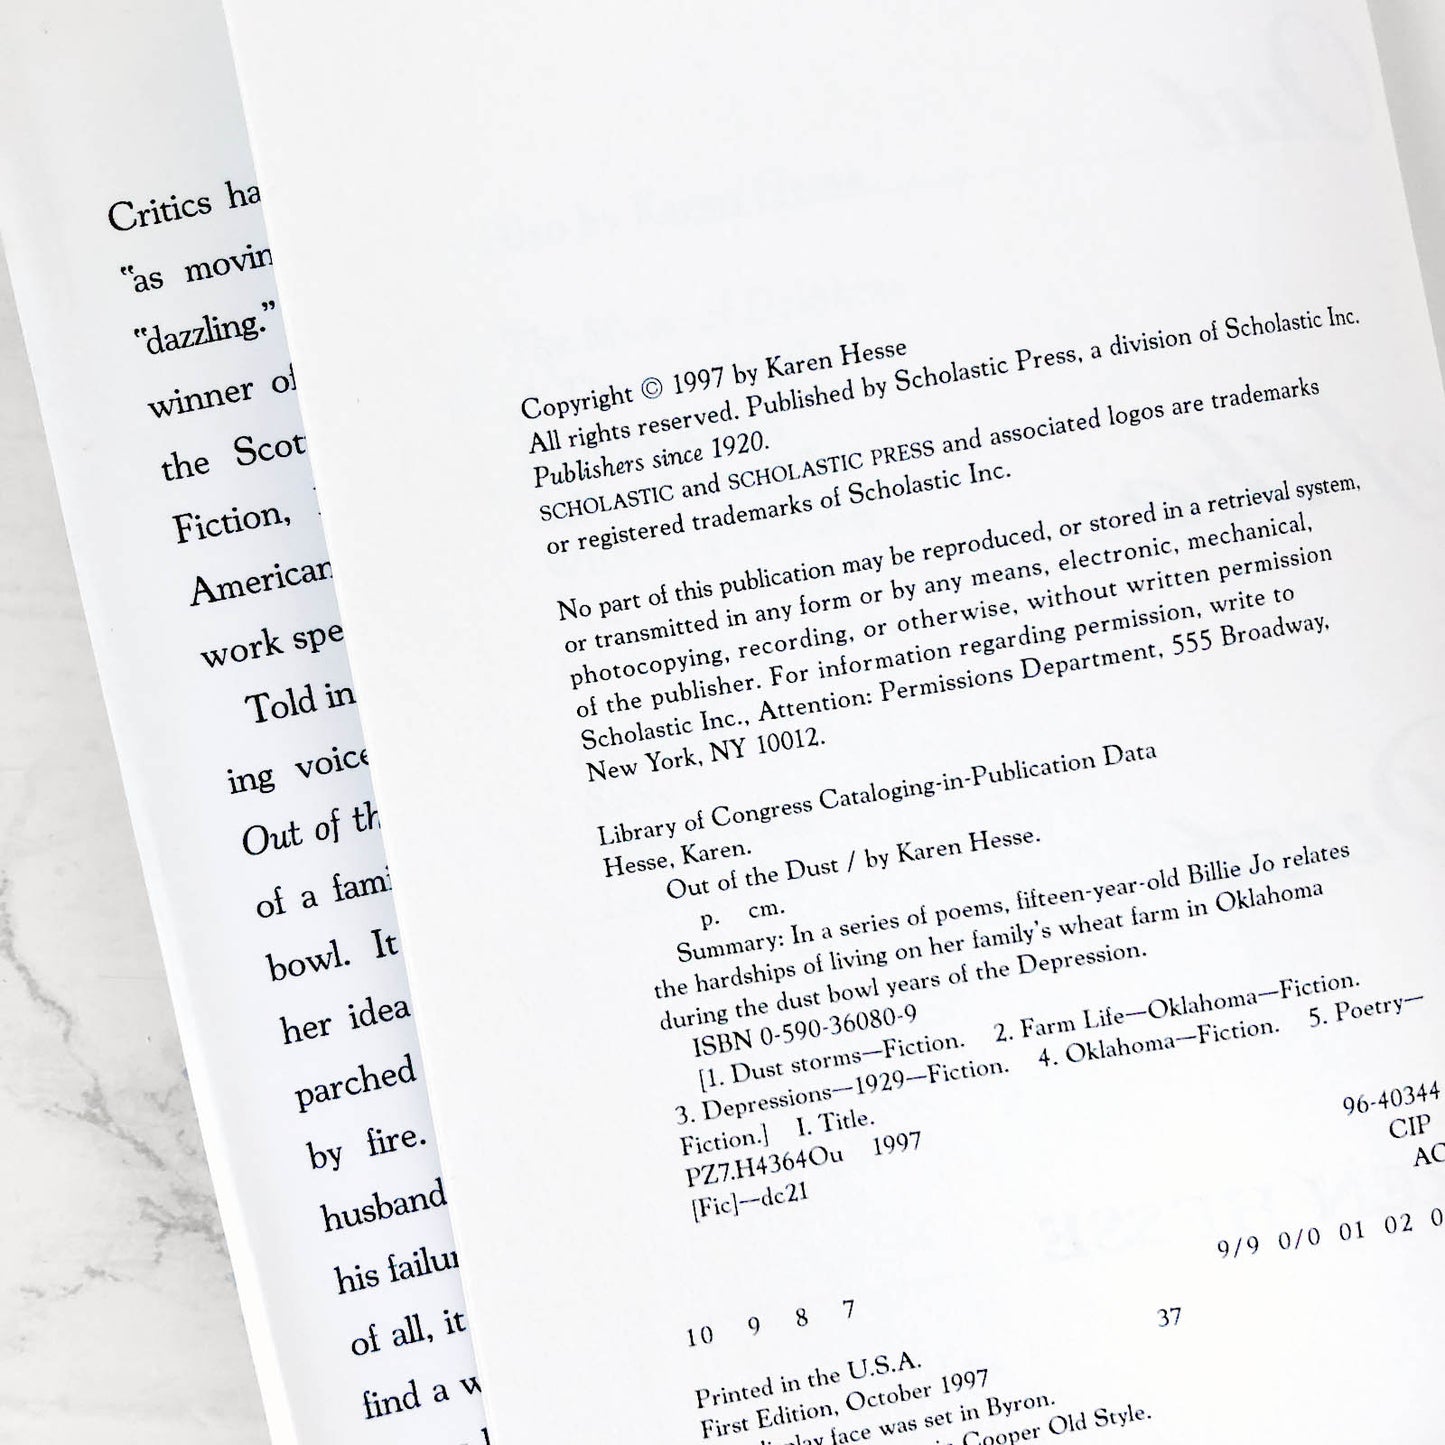 Critics
"as
"dazzling."
winner
the
Fiction,
American
work
Told in
ing voice
Out of
of a
bowl. It
her idea
parched
by fire.
husband
his
of all, it
find a
Copyright © 1997 by Karen Hesse
All rights reserved. Published by Scholastic Press, a division of Scholastic Inc.
Publishers since 1920.
SCHOLASTIC and SCHOLASTIC PRESS and associated logos are trademarks
or registered trademarks of Scholastic Inc.
No part of this publication may be reproduced, or stored in a retrieval system,
or transmitted in any form or by any means, electronic, mechanical,
photocopying, recording, or otherwise, without written permission
of the publisher. For information regarding permission, write to
Scholastic Inc., Attention: Permissions Department, 555 Broadway,
New York, NY 10012.
Library of Congress Cataloging-in-Publication Data
Hesse, Karen.
Out of the Dust / by Karen Hesse.
p. cm.
Summary: In a series of poems, fifteen-year-old Billie Jo relates
the hardships of living on her family's wheat farm in Oklahoma
during the dust bowl years of the Depression.
ISBN 0-590-36080-9
[1. Dust storms—Fiction. 2. Farm Life—Oklahoma—Fiction.
3. Depressions—1929—Fiction. 4. Oklahoma—Fiction. 5. Poetry—
Fiction.] I. Title.
PZ7.H4364Ou 1997 96-40344
[Fic]—dc21 CIP
AC
10 9 8 7 9/9 0/0 01 02 0
37
Printed in the U.S.A.
First Edition, October 1997
face was set in Byron.
Cooper Old Style.